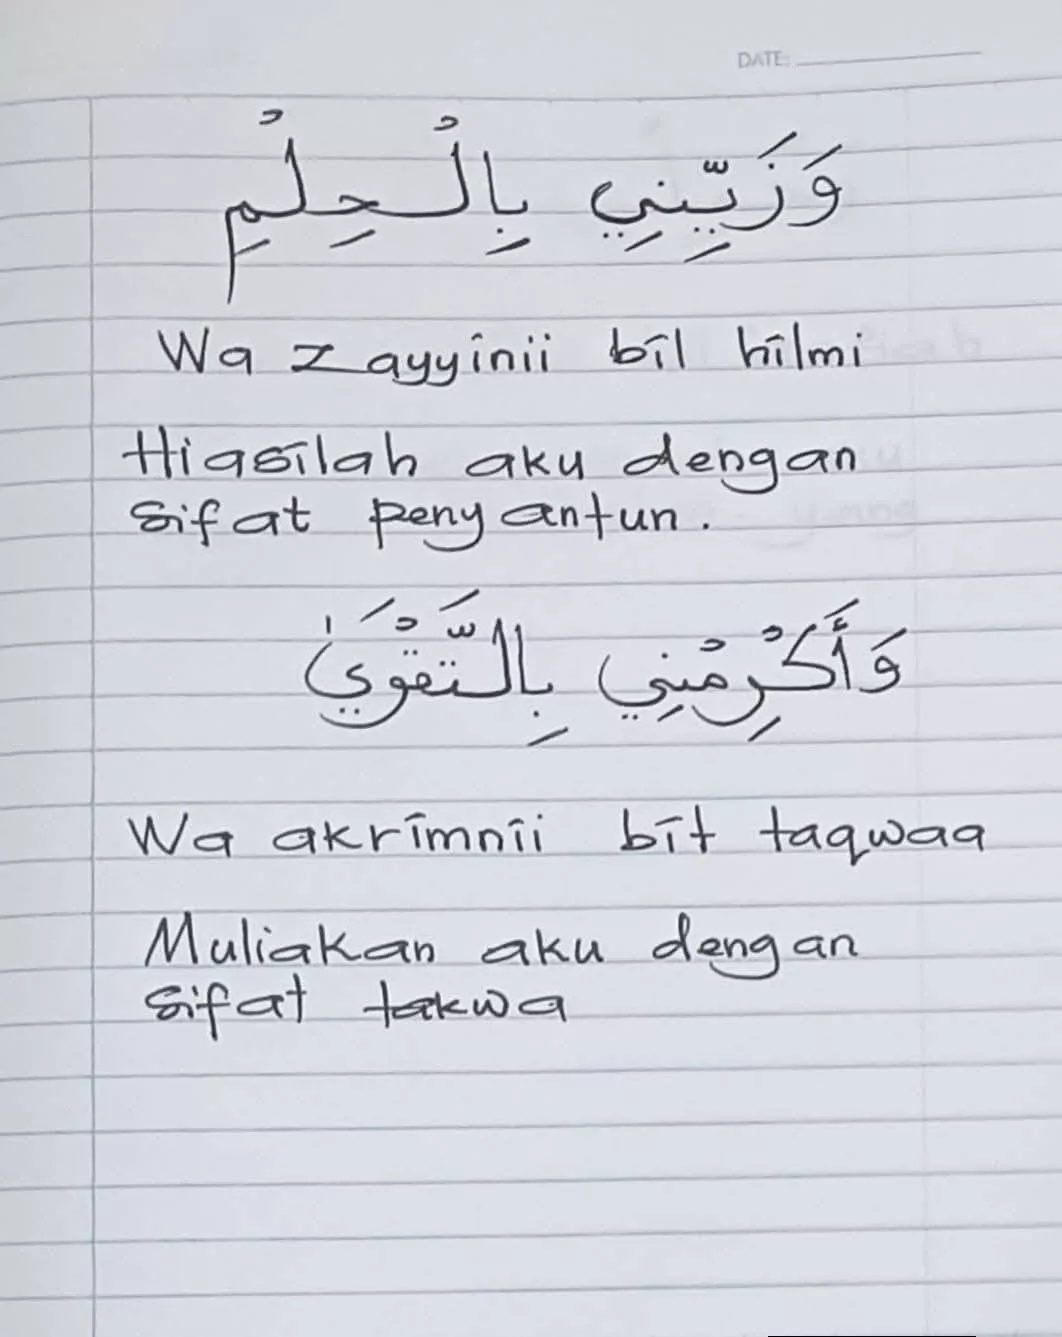 DATE:
وَزَيِّنِي بِالْحِلْمِ
Wa zayyinii bil hilmi
Hiasilah aku dengan
sifat penyantun.
وَأَكْرِمْنِي بِالتَّقْوَىٰ
Wa akrimnii bit taqwaa
Muliakan aku dengan
sifat takwa